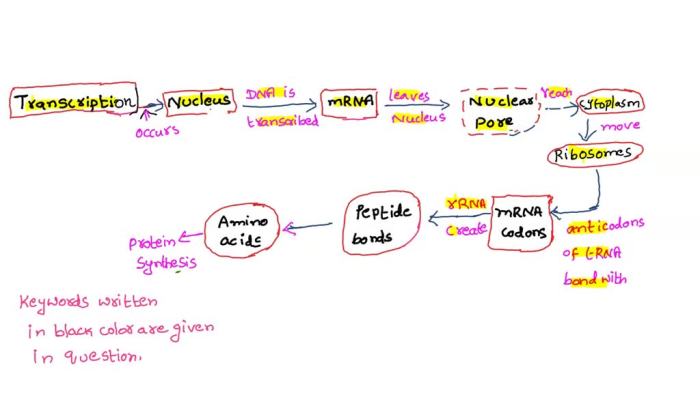 Transcription
occurs
Nucleus
DNA is
transcribed
mRNA
leaves
Nucleus
Nuclear
Pore
reach
cytoplasm
move
Ribosomes
anticodons
of tRNA
bond with
mRNA
codons
rRNA
create
Peptide
bonds
Amino
acids
Protein
Synthesis
Keywords written
in black color are given
in question.